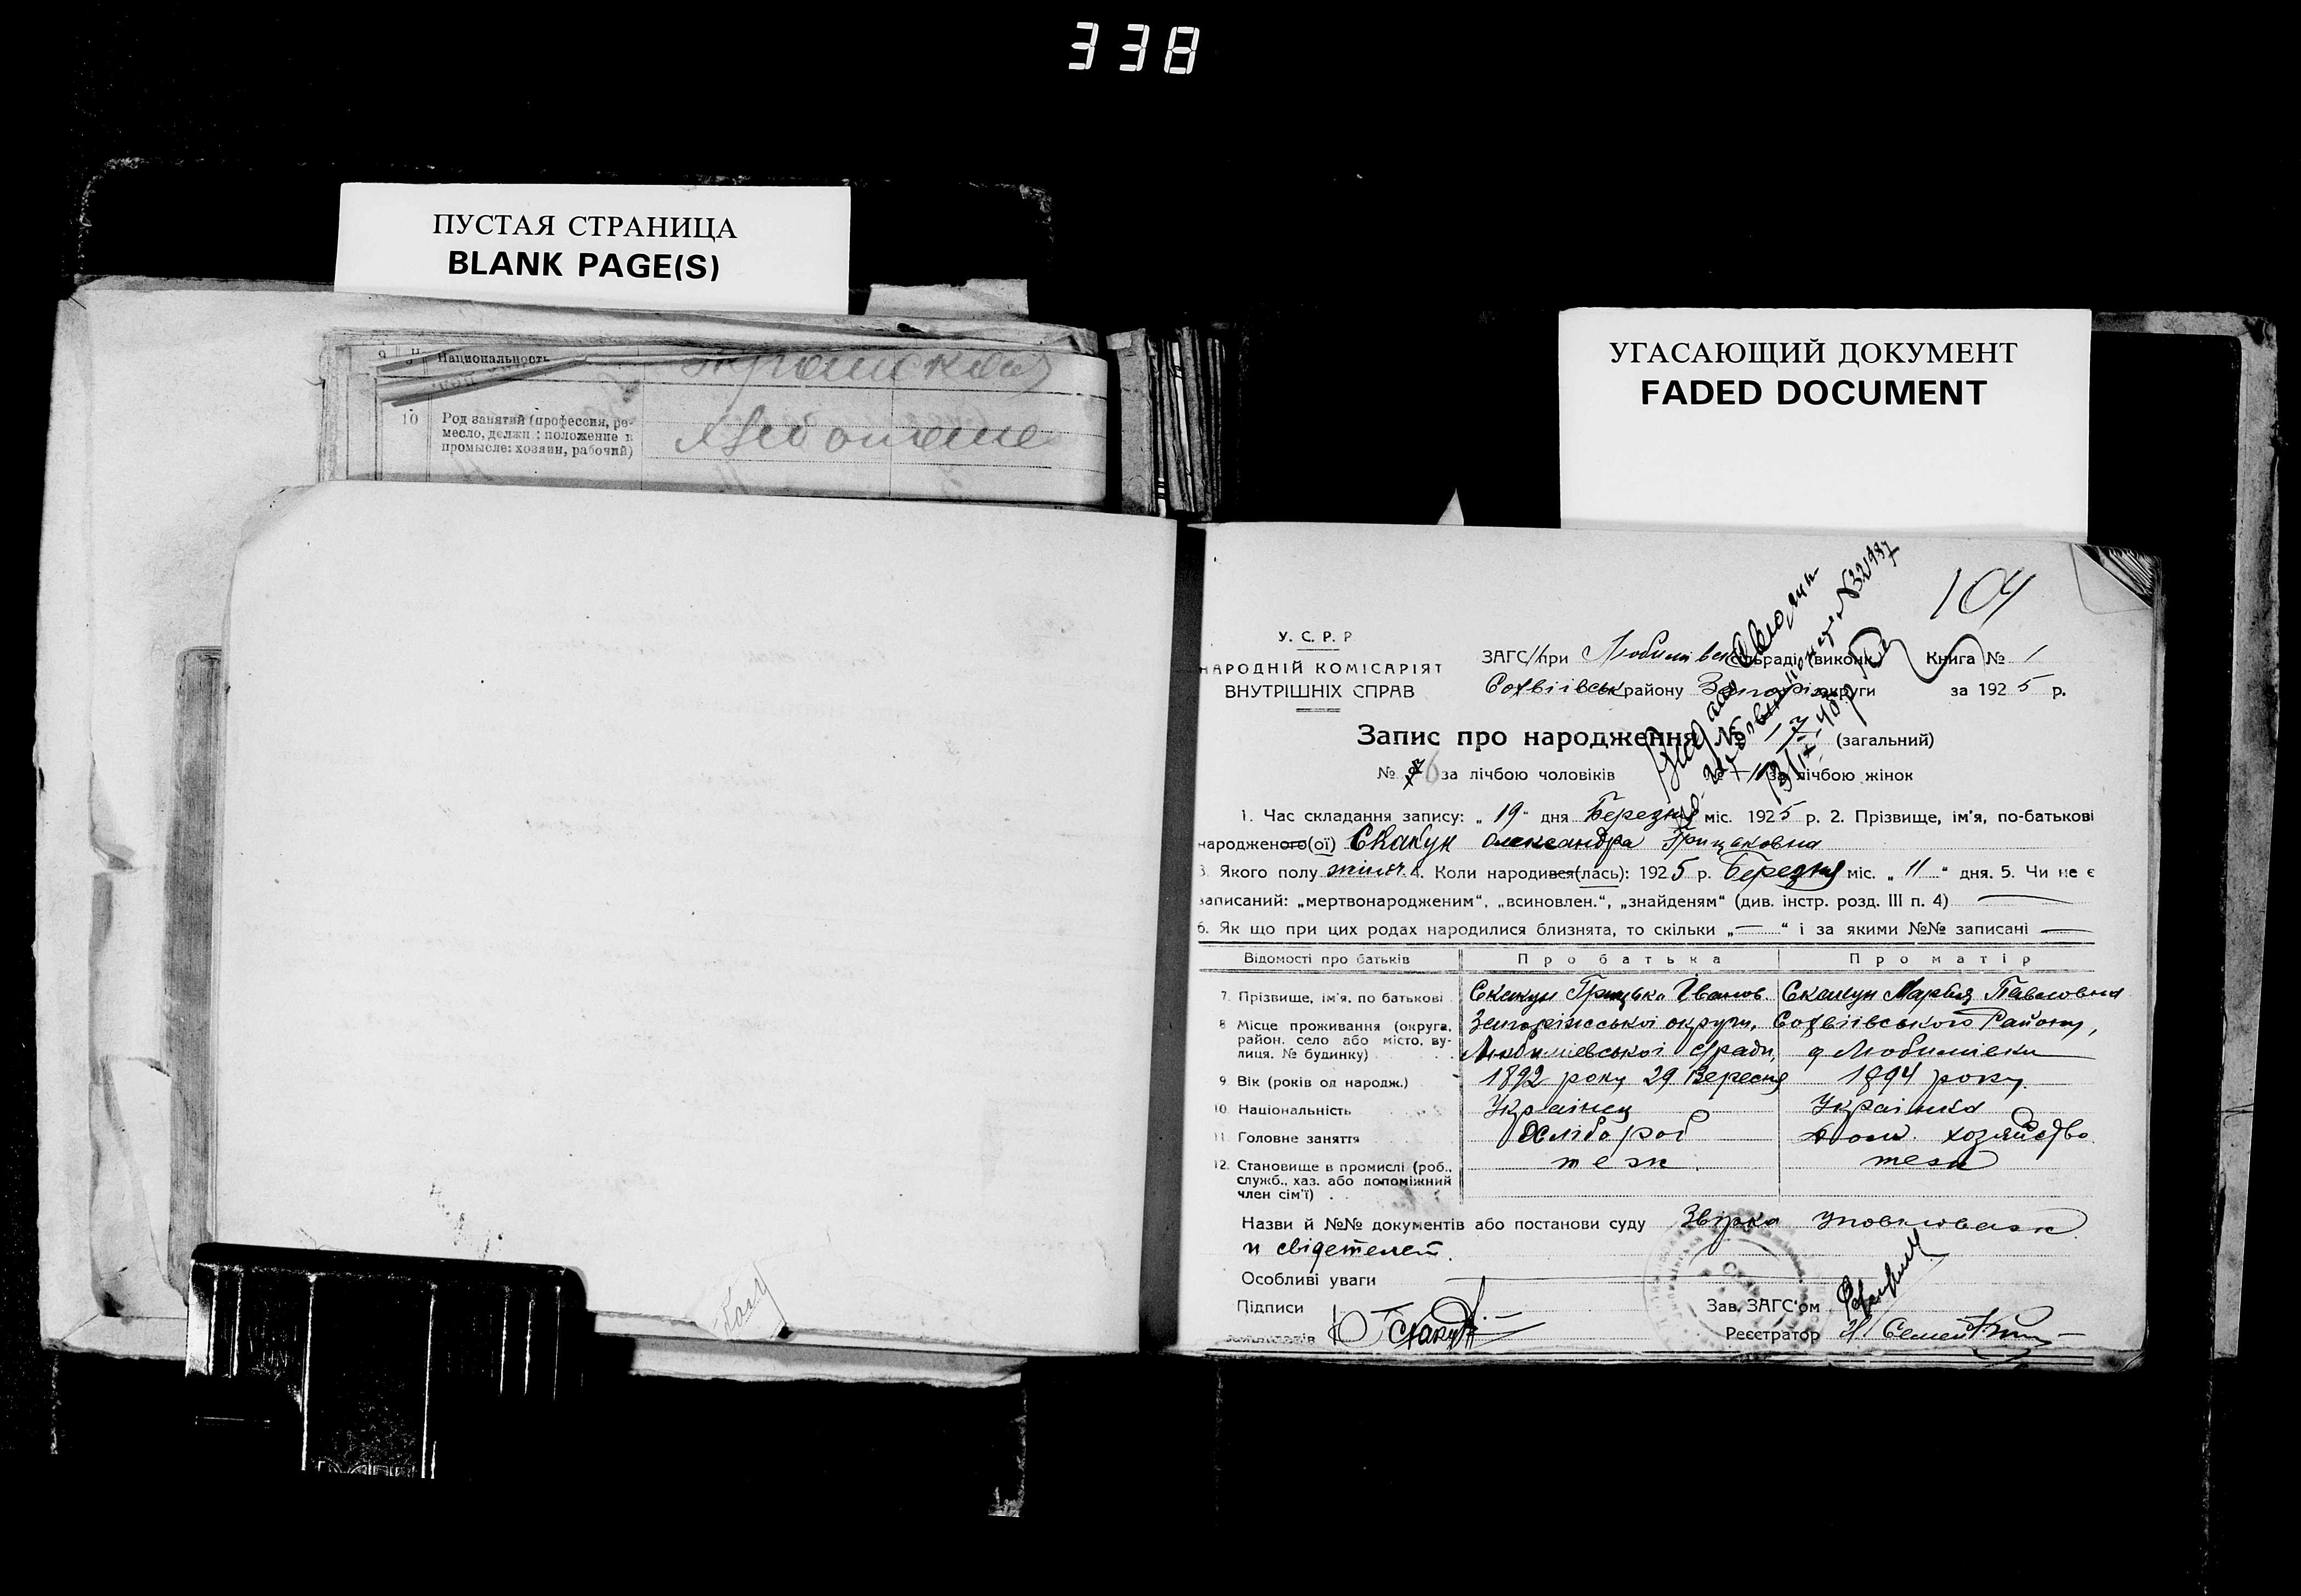 338
ПУСТАЯ СТРАНИЦА
BLANK PAGE(S)
9 Национальность
10 Род занятий (профессия, ре-
месло, должн.: положение в
промысле: хозяин, рабочий)
УГАСАЮЩИЙ ДОКУМЕНТ
FADED DOCUMENT
104
У. С. Р. Р
НАРОДНІЙ КОМІСАРІЯТ
ВНУТРІШНІХ СПРАВ
ЗАГС при сільраді (виконк. Книга № 1
Софіївськ району округи за 1925 р.
Запис про народження № 17 (загальний)
№ 6 за лічбою чоловіків № 11 за лічбою жінок
1. Час складання запису: „ 19 " дня Березня міс. 1925 р. 2. Прізвище, ім'я, по-батькові
народженого(ої) Скакун Олександра Грицьковна
3. Якого полу жіноч. 4. Коли народився(лась): 1925 р. Березня міс. „ 11 " дня. 5. Чи не є
записаний: „мертвонародженим", „всиновлен.", „знайденям" (див. інстр. розд. III п. 4) —
6. Як що при цих родах народилися близнята, то скільки „ — " і за якими №№ записані —
Відомості про батьків Про батька Про матір
7. Прізвище, ім'я, по батькові Скакун Грицько Іванов. Скакун Марія Павловна
8 Місце проживання (округа, Запоріжської округи, Софіівського Району,
район, село або місто, ву- Любимівської с/ради, Любимівка
лиця, № будинку)
9. Вік (років од народж.) 1892 року 29 Вересня 1894 року
10. Національність Украінец Украінка
11. Головне заняття Хлібороб Дом. хозяйство
12. Становище в промислі (роб., теж теж
служб., хаз. або допоміжний
член сім'ї)
Назви й №№ документів або постанови суду Звірка
и свідетелей.
Особливі уваги
Підписи Зав. ЗАГС'ом
Реєстратор